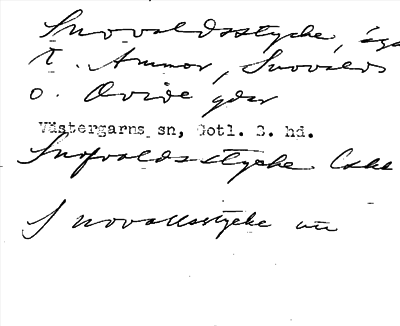 Snovaldsstycke, äga
t. Ammor, Snovalds
o. Qvide ydar
Västergarns sn, Gotl. S. hd.
Snofvaldsstycke
Snovallsstycke